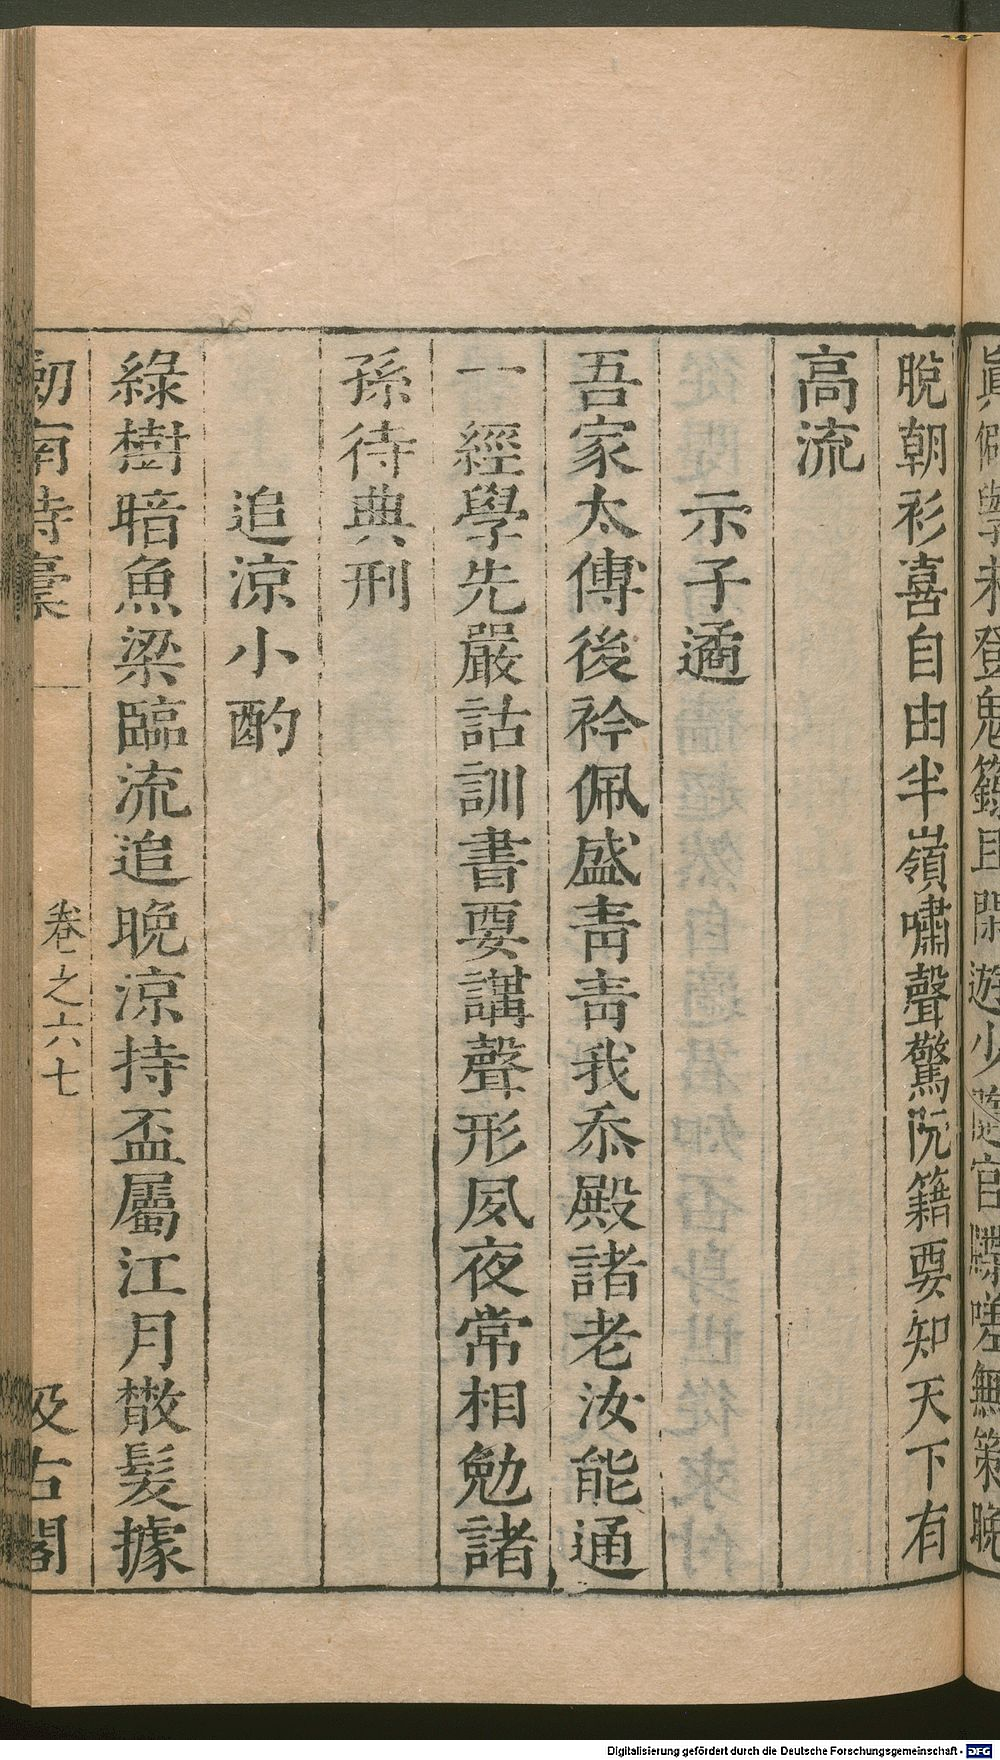 眞個學未登鬼籙且閑遊少隨官牒嗟無策晚
脫朝衫喜自由半嶺嘯聲驚阮籍要知天下有
高流
示子遹
吾家太傅後衿佩盛靑靑我忝殿諸老汝能通
一經學先嚴詁訓書要講聲形夙夜常相勉諸
孫待典刑
追涼小酌
綠樹暗魚梁臨流追晚涼持盃屬江月散髮據
劒南詩稾 卷之六七 汲古閣
Digitalisierung gefördert durch die Deutsche Forschungsgemeinschaft - DFG